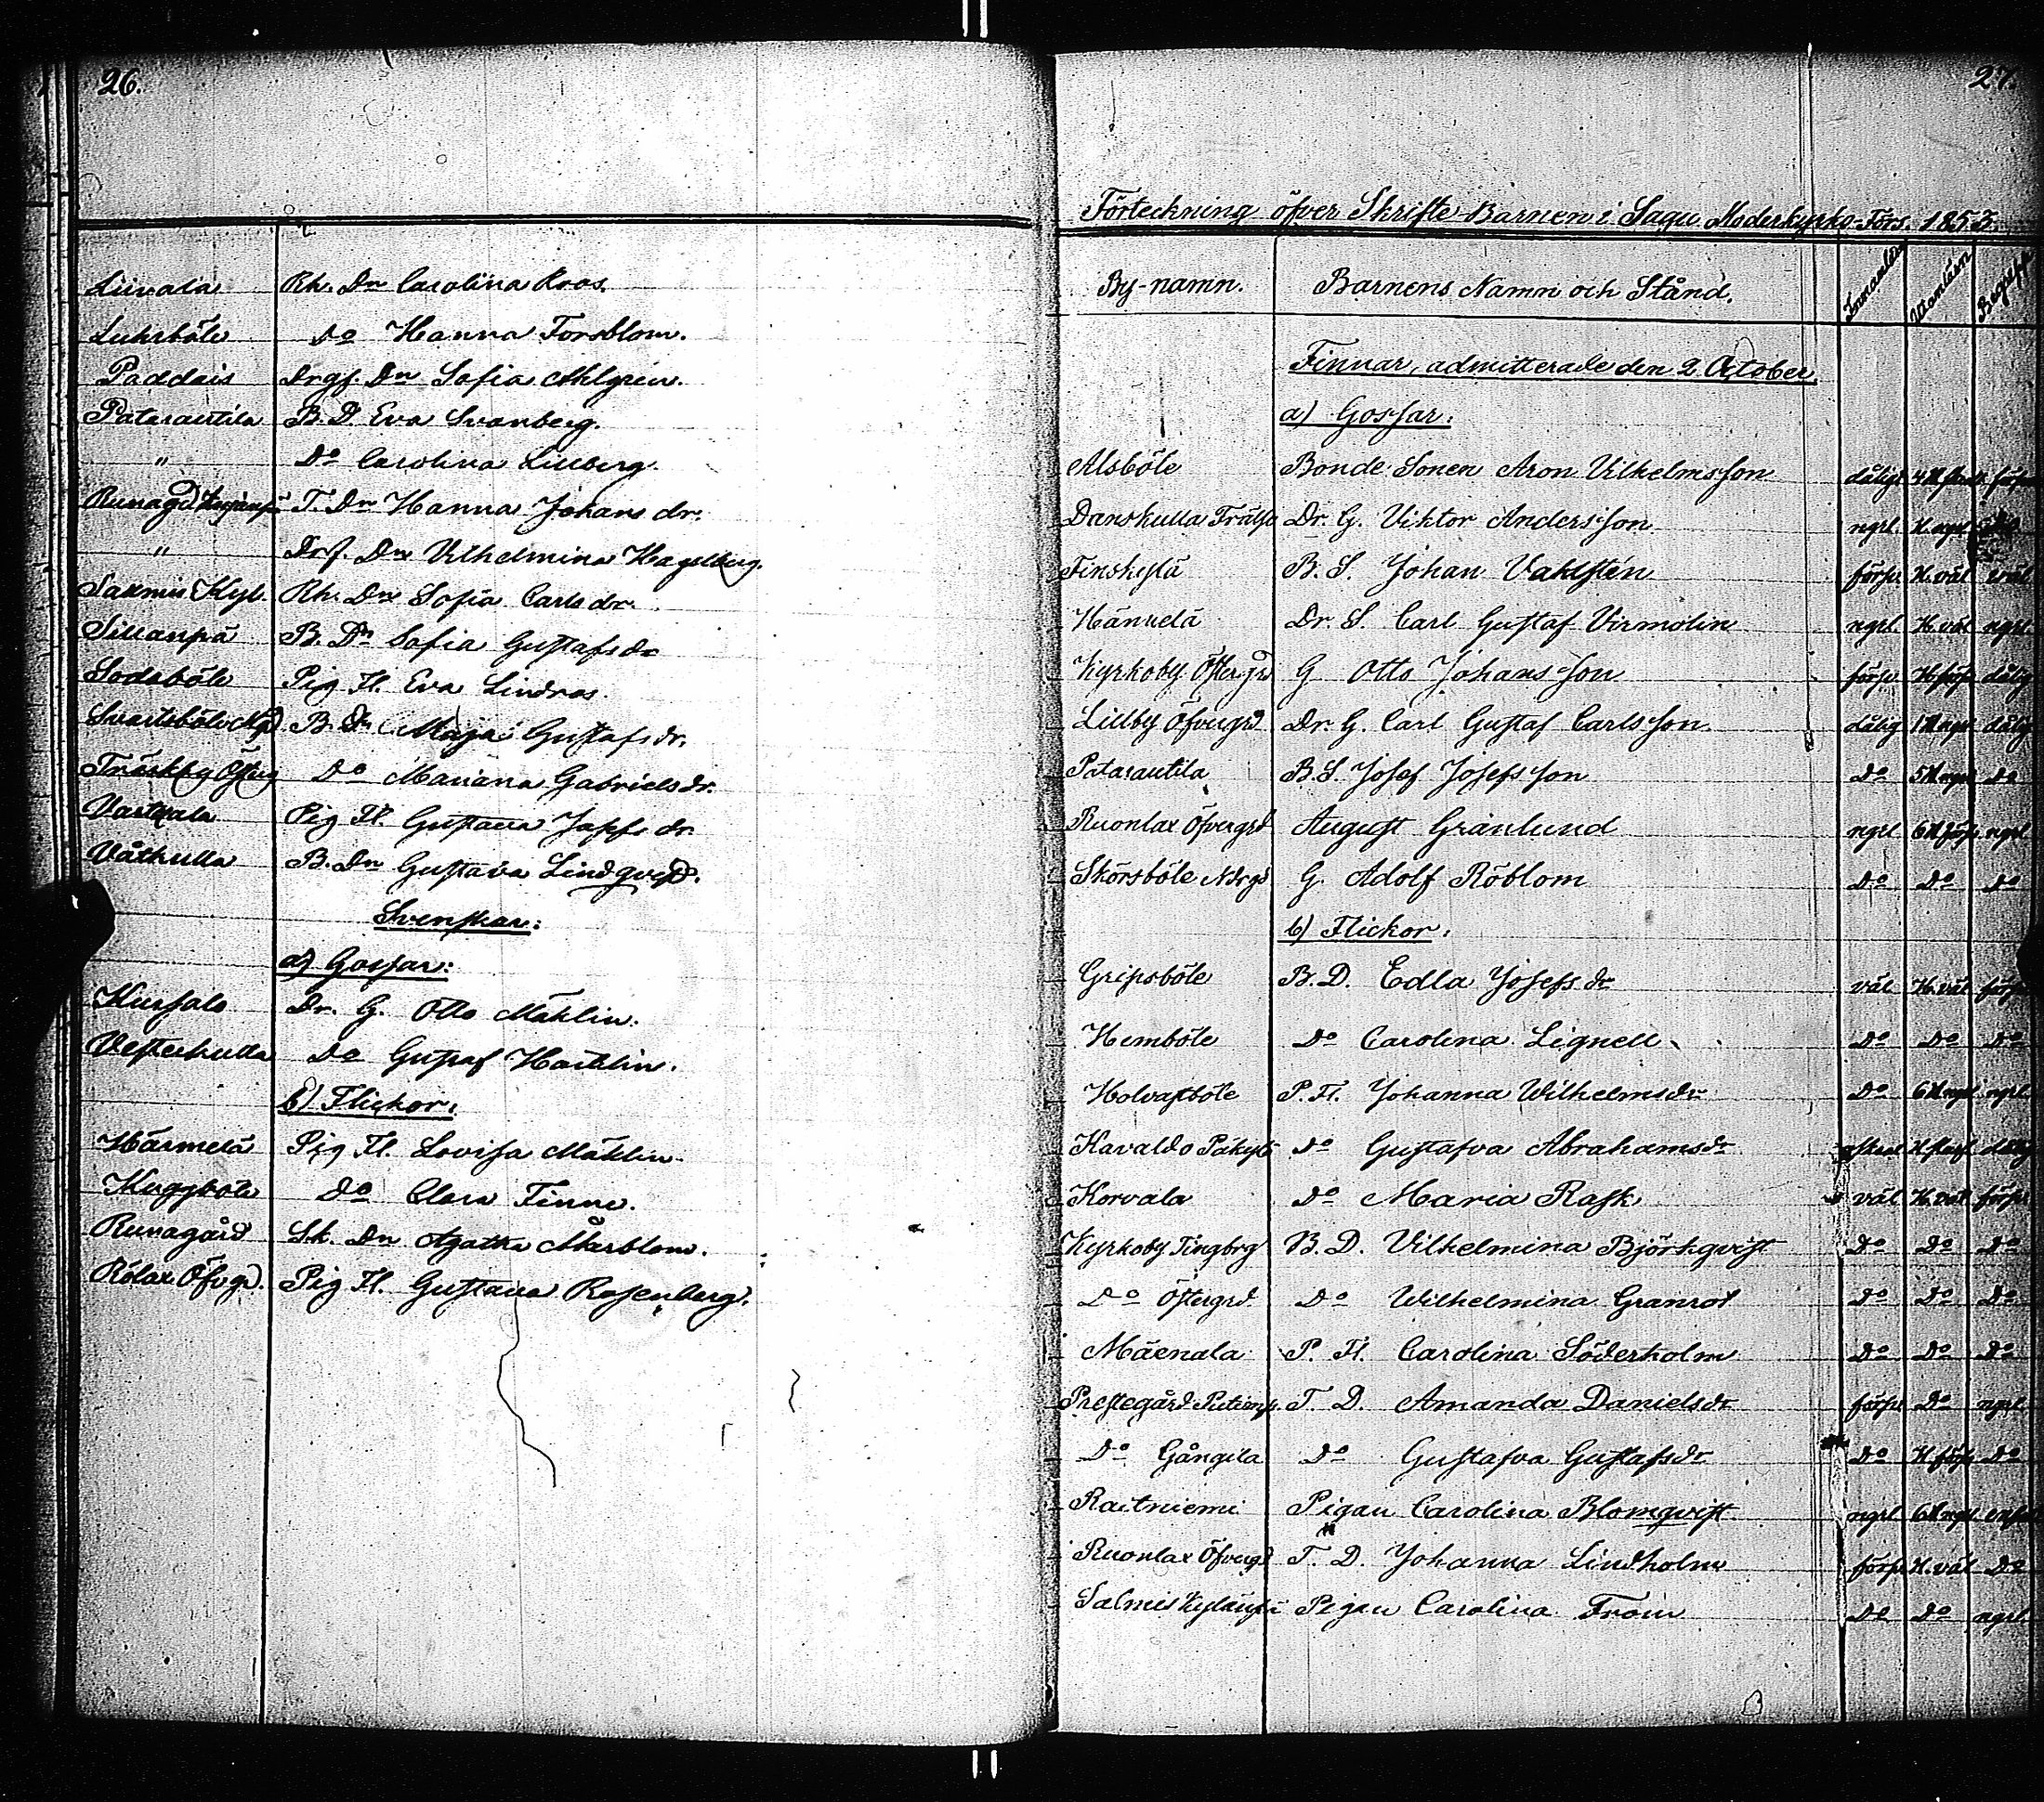 26.
Liivala Rh. Dr Carolina Roos.
Luhrböle Do Hanna Forsblom.
Paddais Drgf. Dr Sofia Ahlgren.
Patarautila B. D. Eva Svanberg.
" Do Carolina Lillberg.
Runagd T. Dr Hanna Johans dr.
" Drf. Dr Vilhelmina Hagelberg.
Salmis Kyl. Rh. Dr Sofia Carls dr.
Sillanpä B. Dr Sofia Gustafs dr
Sodaböle Pig Fl. Eva Lindroos.
Svartsböle B. Dr Maja Gustafs dr.
Träskby Österg Do Mariana Gabriels dr.
Vastkala Pig Fl. Gustava Josefs dr
Våtkulla B. Dr Gustava Lindqvist.
Svenskar:
a) Gossar:
Kurssalo Dr. G. Otto Mählin.
Vesterkulla Do Gustaf Hartlin.
b) Flickor:
Härmelä Pig Fl. Lovisa Mählin.
Kuggböle Do Clara Finne.
Runagård Sk. Dr Agatha Åkerblom.
Rölax Öfvgd. Pig Fl. Gustava Rosenberg.
27.
Förteckning öfver Skrifte-Barnen i Sagu Moderkyrko-Förs. 1853.
By-namn. Barnens Namn och Stånd. Innanläsn Utanläsn Begrepp
Finnar, admitterade den 2 October
a) Gossar:
Alsböle Bonde Sonen Aron Vilhelmsson dåligt
Danskulla Frälse Dr. G. Viktor Andersson ngrl. H. ngrl
Finskylä B. S. Johan Vahlstén försv. H. väl väl
Hännelä Dr. S. Carl Gustaf Virmolin ngrl. H. väl ngrl.
Kyrkoby Östergd G Otto Johansson försv. H. försv dålig
Lillby Öfvergd Dr. G. Carl Gustaf Carlsson dålig 1 H ngrl dålig
Patarautila B. S. Josef Josefsson Do 5 H ngrl Do
Ruonlax Öfvergd August Granlund ngrl 6 H försv ngrl
Skörsböle Ndrgd G. Adolf Röblom Do Do Do
b) Flickor:
Gripsböle B. D. Edla Josefs dr väl H. väl försv
Hemböle Do Carolina Lignell Do Do Do
Holvastböle P. Fl. Johanna Wilhelmsdr Do 6 H ngrl ngrl
Karvaldo Do Gustafva Abrahamsdr dålig
Korvala Do Maria Rask väl H. väl försv
Kyrkoby Tingbrg B. D. Vilhelmina Björkqvist Do Do Do
Do Östergrd. Do Wilhelmina Granrot Do Do Do
Mäenala P. Fl. Carolina Söderholm Do Do Do
Prestegård T. D. Amanda Danielsdr försv Do ngrl
Do Gångila Do Gustafva Gustafsdr Do H försv Do
Raitniemi Pigan Carolina Blomqvist ngrl 6 H ngrl
Ruonlax Öfvergd T. D. Johanna Lindholm försv H. väl Do
Salmis Kylänpä Pigan Carolina From Do Do ngrl